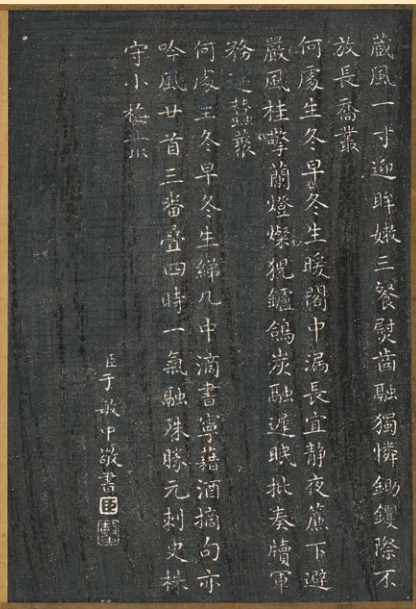 藏風一寸迎眸嫩三餐慰齒融獨憐鋤钁際不
放長喬叢
何處生冬早冬生暖閣中漏長宜静夜簾下避
嚴風桂擎蘭燈燦猊鑪鴿炭融遲眠批奏牘軍
務
何處生冬早冬生綈几中滴書寧藉酒摘句亦
吟風廿首三番疊四時一氣融殊勝元刺史株
守小梅叢
臣于敏中敬書